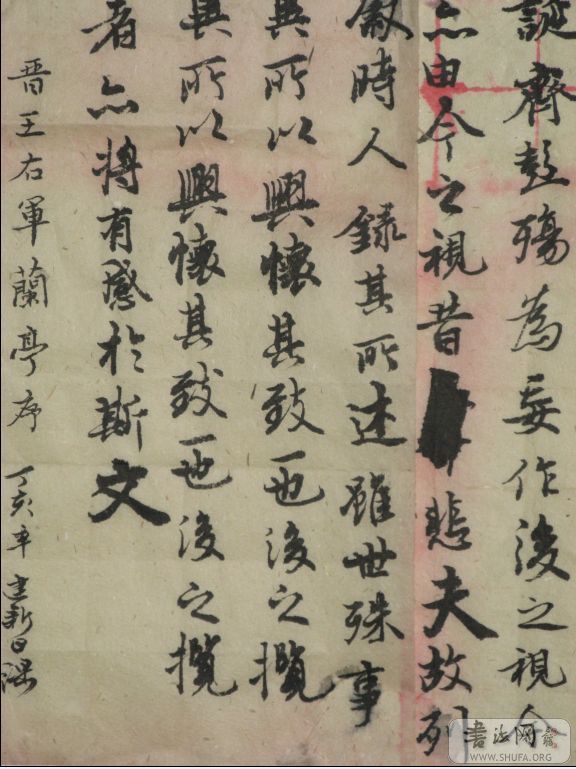 誕齊彭殤為妄作後之視今
亦由今之視昔悲夫故列
敘時人錄其所述雖世殊事
異所以興懷其致一也後之攬
異所以興懷其致一也後之攬
者亦将有感於斯文
晋王右軍蘭亭序 丁亥年建新日課
書法网
WWW.SHUFA.ORG